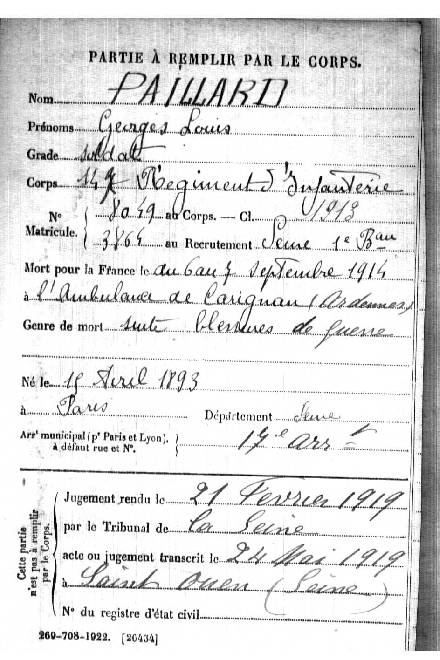 PARTIE À REMPLIR PAR LE CORPS.
Nom PAILLARD
Prénoms Georges Louis
Grade soldat
Corps 147 Régiment d'Infanterie
N° Matricule. { 8049 au Corps. — Cl. 1913
3864 au Recrutement Seine 1e Bau
Mort pour la France le du 6 au 7 septembre 1914
à l'Ambulance de Carignan (Ardennes)
Genre de mort suite blessures de guerre
Né le 15 Avril 1893
à Paris Département Seine
Arrt municipal (pr Paris et Lyon), à défaut rue et N°. } 17e arrt
Cette partie n'est pas à remplir par le Corps.
Jugement rendu le 21 Février 1919
par le Tribunal de La Seine
acte ou jugement transcrit le 24 Mai 1919
à Saint Ouen (Seine)
N° du registre d'état civil
269-708-1922. [26434]